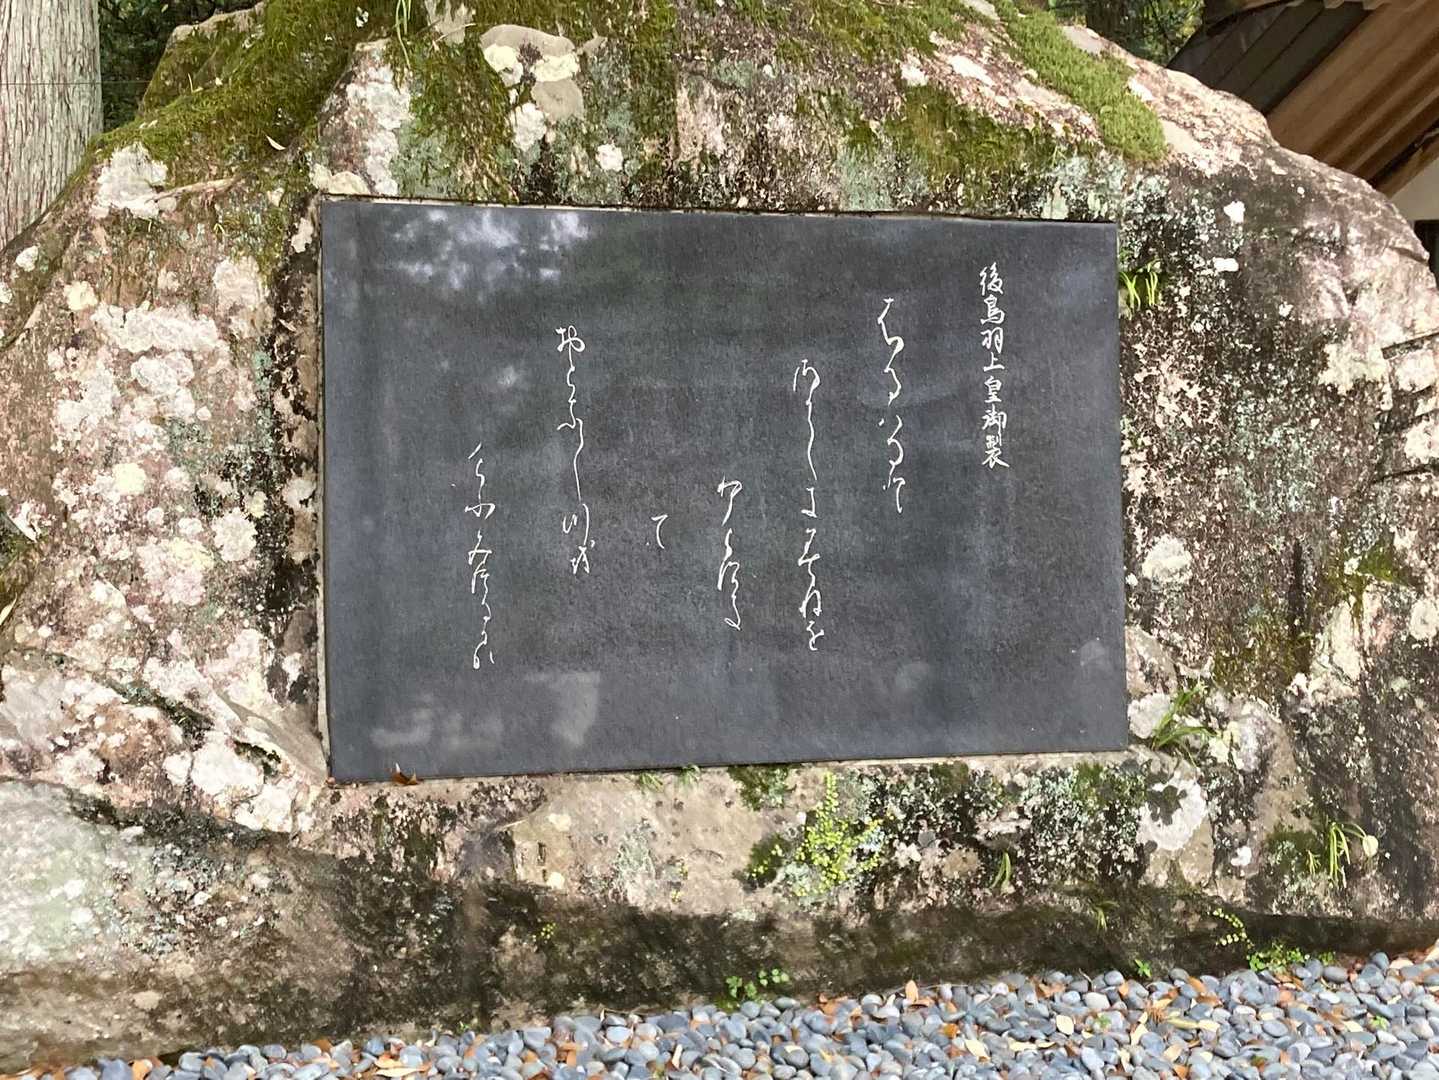 後鳥羽上皇御製
はるはると
さかしきみねを
わけすき
て
おとなし川を
けふみつるかな